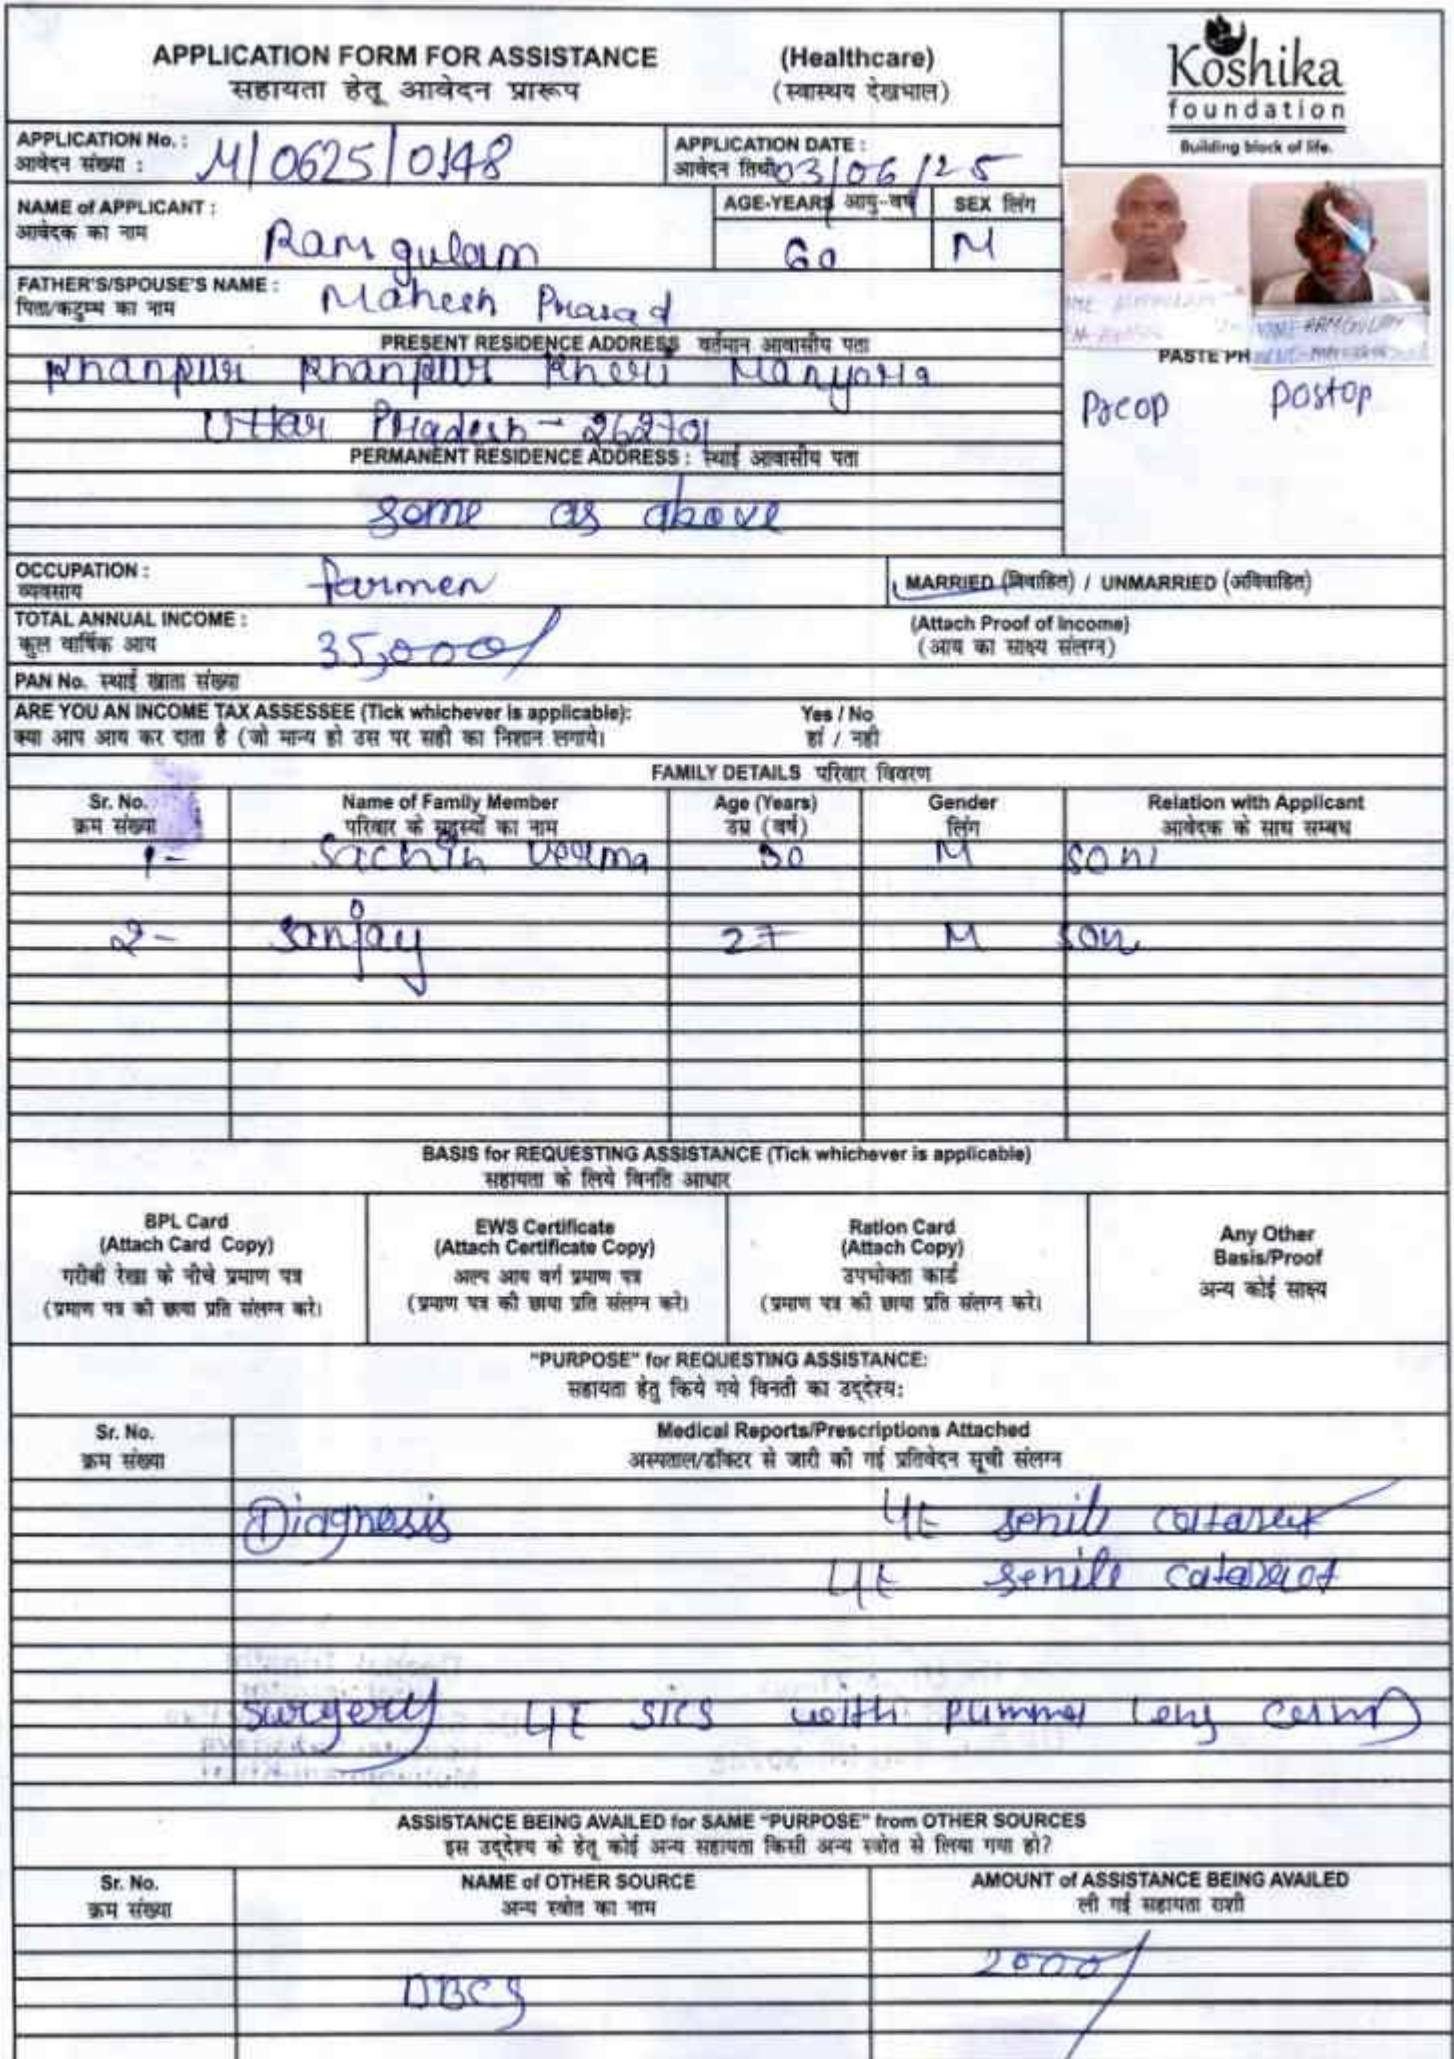 APPLICATION FORM FOR ASSISTANCE (Healthcare)
सहायता हेतू आवेदन प्रारूप (स्वास्थय देखभाल)
Koshika
foundation
Building block of life.
APPLICATION No. :
आवेदन संख्या : M/0625/0148
APPLICATION DATE :
आवेदन तिथी 03/06/25
NAME of APPLICANT :
आवेदक का नाम Ramgulam
AGE-YEARS आयु-वर्ष 60
SEX लिंग M
FATHER'S/SPOUSE'S NAME :
पिता/कटुम्ब का नाम Mahesh Prasad
PASTE PH
Preop postop
PRESENT RESIDENCE ADDRESS वर्तमान आवासीय पता
Khanpur Khanpur Kheri
Uttar Pradesh - 262701
PERMANENT RESIDENCE ADDRESS : स्थाई आवासीय पता
some as above
OCCUPATION :
व्यवसाय farmer
MARRIED (विवाहित) / UNMARRIED (अविवाहित)
TOTAL ANNUAL INCOME :
कुल वार्षिक आय 35,000/
(Attach Proof of Income)
(आय का साक्ष्य संलग्न)
PAN No. स्थाई खाता संख्या
ARE YOU AN INCOME TAX ASSESSEE (Tick whichever is applicable): Yes / No
क्या आप आय कर दाता है (जो मान्य हो उस पर सही का निशान लगाये। हां / नही
FAMILY DETAILS परिवार विवरण
Sr. No. Name of Family Member Age (Years) Gender Relation with Applicant
क्रम संख्या परिवार के सदस्यों का नाम उम्र (वर्ष) लिंग आवेदक के साथ सम्बध
1- Sachin Verma 30 M son
2- Sanjay 27 M son
BASIS for REQUESTING ASSISTANCE (Tick whichever is applicable)
सहायता के लिये विनति आधार
BPL Card
(Attach Card Copy)
गरीबी रेखा के नीचे प्रमाण पत्र
(प्रमाण पत्र की छाया प्रति संलग्न करे।
EWS Certificate
(Attach Certificate Copy)
अल्प आय वर्ग प्रमाण पत्र
(प्रमाण पत्र की छाया प्रति संलग्न करे।
Ration Card
(Attach Copy)
उपभोक्ता कार्ड
(प्रमाण पत्र की छाया प्रति संलग्न करे।
Any Other
Basis/Proof
अन्य कोई साक्ष्य
"PURPOSE" for REQUESTING ASSISTANCE:
सहायता हेतु किये गये विनती का उद्देश्य:
Sr. No. Medical Reports/Prescriptions Attached
क्रम संख्या अस्पताल/डॉक्टर से जारी की गई प्रतिवेदन सूची संलग्न
Diagnosis LE senile cataract
LE senile cataract
Surgery LE SICS with
ASSISTANCE BEING AVAILED for SAME "PURPOSE" from OTHER SOURCES
इस उद्देश्य के हेतू कोई अन्य सहायता किसी अन्य स्त्रोत से लिया गया हो?
Sr. No. NAME of OTHER SOURCE AMOUNT of ASSISTANCE BEING AVAILED
क्रम संख्या अन्य स्त्रोत का नाम ली गई सहायता राशी
DBCS 2000/